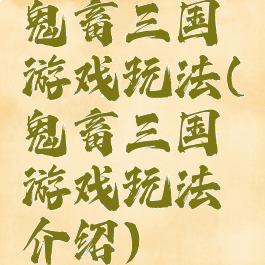 鬼畜三国
游戏玩法(
鬼畜三国
游戏玩法
介绍)